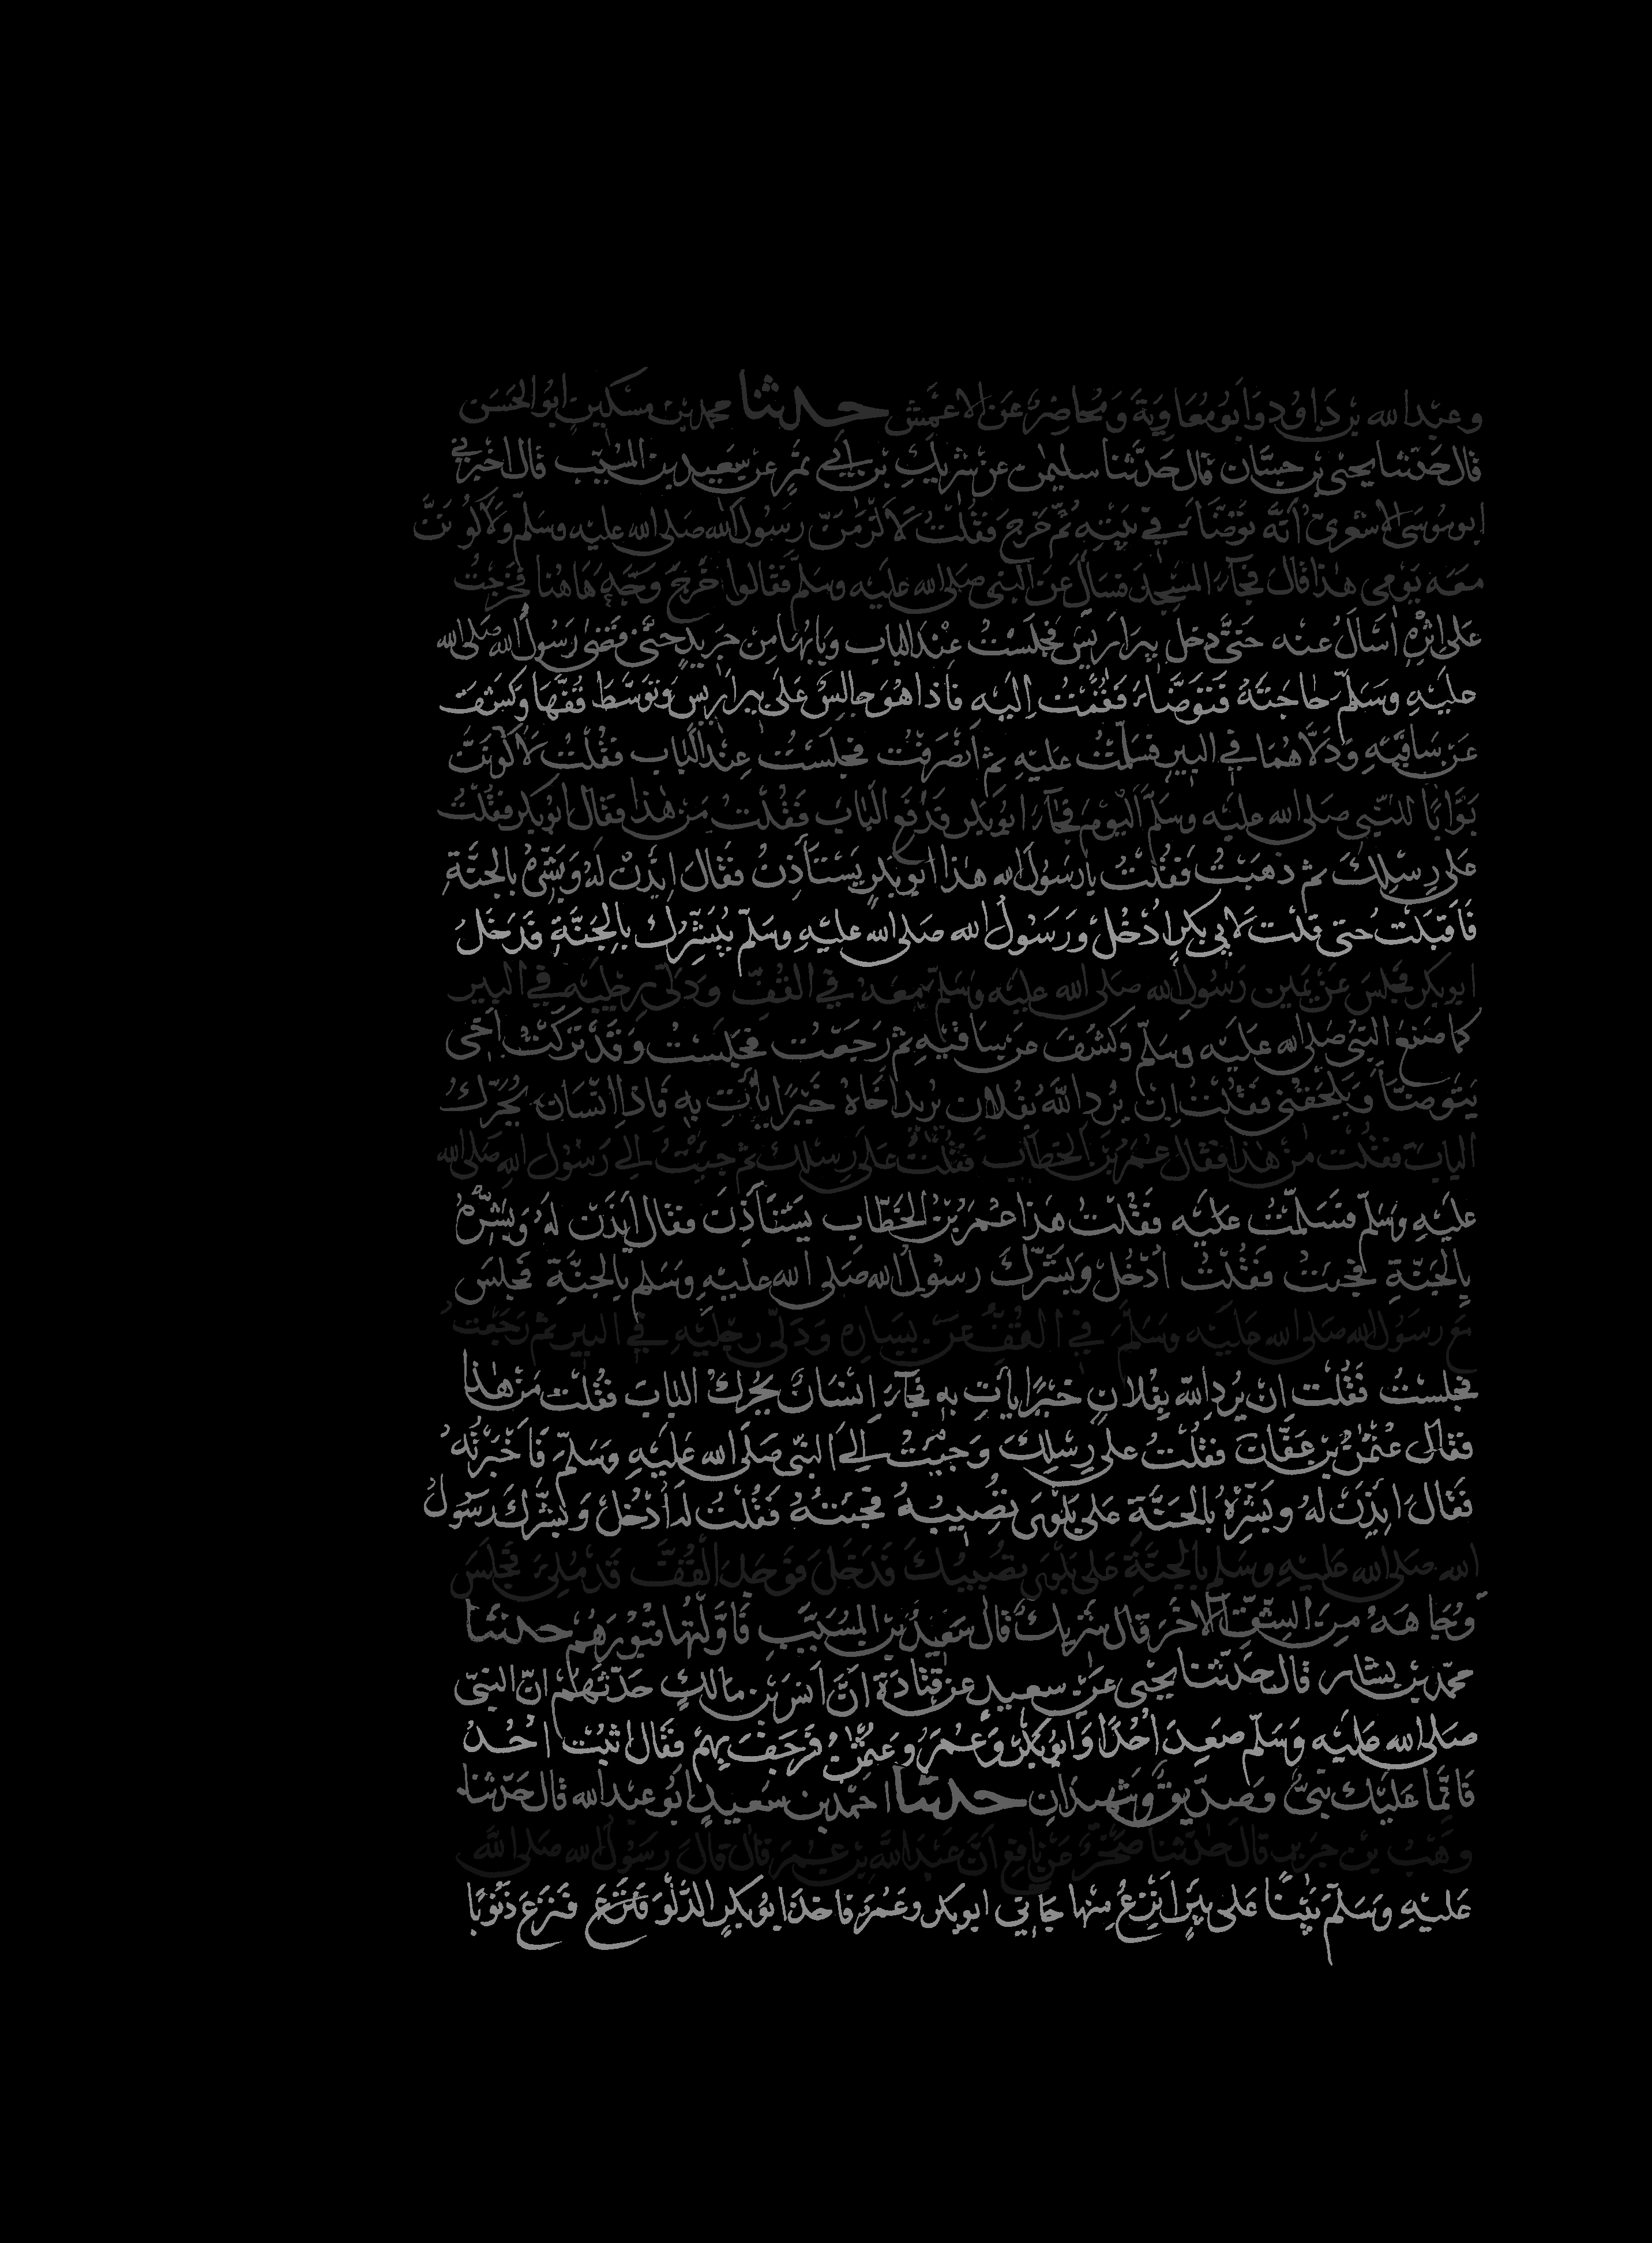 وعبد الله بن داوُد وَابو مُعَاوِيَةَ وَمُحاضِرٌ عَنِ الاعمَش حدثنا محمد بن مسكين ابُو الحَسَن
قال حَدّثنا يحيى بن حسَّان قال حَدَّثنا سليمٰن عن شَرِيكِ بن اَبي نَمِرٍ عن سَعِيدِ بن المسَيّب قال اخبَرني
ابو مُوسَى الاشعَرىّ اَنَّه توَضَّاَ في بَيْتِهِ ثمَّ خَرجَ فقُلتُ لاَلزَمَنَّ رسُولَ الله صَلى الله عليه وسَلم وَلاَكُونَنَّ
معَه يَومِى هٰذا قال فجآءَ المسجدَ فسَاَلَ عَنِ النبى صَلى الله عليه وسلم فقالوا خَرجَ وَوَجَّهَ هَاهُنا فخرجْتُ
عَلى اِثْرِهِ اَسْاَلُ عنه حَتّى دخلَ بيرَ اَرِيسَ فجَلَسْتُ عِنْدَ البابِ وبَابُهَا مِن جَرِيدٍ حتّى قضَى رَسُولُ الله صَلى الله
عليْهِ وسَلَّمَ حَاجَتَهُ فتَوَضّاَ فقُمْتُ اِليهِ فاذا هُوَ جالِسٌ عَلَى بير اَرِيسٍ وتوَسَّطَ قُفَّهَا وَكَشَفَ
عَن سَاقَيْهِ وَدَلَّاهُمَا في البير فسَلّمْتُ عليهِ ثم اَنْصَرَفْتُ فجَلَسْتُ عِنْدَ البَاب فقُلْتُ لاَكُونَنَّ
بَوَّابًا للنّبِى صَلى الله عليه وسَلّمَ اليَوْمَ فجآءَ ابُو بَكرٍ فدَفَع البَابَ فقُلْتُ مَن هٰذا فقَال ابُو بكر فقُلْتُ
عَلى رِسْلِكَ ثم ذهَبْتُ فقُلْتُ يا رَسُولَ الله هٰذا ابو بكرٍ يَسْتَاْذِنُ فقَالَ اِيْذَنْ لهُ وَبَشّرْهُ بالجنَّةِ
فَاَقبَلْتُ حتى قلت لاَبي بكرٍ اُدْخُلْ وَرَسُولُ الله صَلى الله عليْهِ وسَلّم يُبَشّرُك بالجَنَّةِ فدَخَلَ
ابو بكر فجَلسَ عَنْ يَمين رَسُولِ الله صَلى الله عليْه وسَلم مَعَهُ في القُفّ وَدَلّى رِجْليْهِ في البير
كما صَنَعَ النبىُّ صَلى الله عليه وسَلّم وَكشَفَ عن سَاقيْهِ ثم رَجَعْتُ فجَلَسْتُ وَقدْ تَرَكْتُ اَخى
يَتَوَضّاُ وَيَلحَقُنى فقُلْتُ اِنْ يُرِدِ اللهُ بفُلان يُريدُ اخَاهُ خَيْرًا يَاْتِ به فَاذا انسَان يُحَرّكُ
البابَ فقُلْت مَنْ هٰذا فقَال عُمَرُ بْنُ الخطَّابِ فقُلْتُ عَلى رِسْلِك ثم جِيْتُ اِلى رَسُول الله صَلى الله
عليْهِ وسَلّم فسَلّمْتُ عليه فقُلْتُ هٰذا عُمَرُ بْنُ الخَطّاب يَسْتَاْذِن فقال ايذَنْ لهُ وَبَشّرْهُ
بالجَنّةِ فجيتُ فقُلْتُ ادْخُلْ وَبَشّرَكَ رسُولُ الله صَلى الله عليْهِ وَسَلم بِالجنّةِ فجلَسَ
مَعَ رسَوُل الله صلى الله عليه وسَلّمَ في القُفّ عن يسَاره وَدَلّى رِجْليْهِ في البير ثم رَجَعْتُ
فجلستُ فقُلْت ان يُردِ الله بِفُلانٍ خيْرًا يَاْتِ بهِ فجآءَ اِنسَانٌ يُحرّكُ البابَ فقُلْت مَنْ هٰذا
فقَال عُثمٰنُ بن عَفّانَ فقُلْتُ على رِسْلِكَ وَجيْتُ اِلى النبّى صَلى الله عَليْهِ وسَلّمَ فَاَخْبَرْتُهُ
فَقالَ ايذَنْ لهُ وبَشّرْهُ بالجنَّة عَلى بَلْوَى تُصِيبُهُ فجيتهُ فقُلْتُ لهُ ادْخُلْ وَبَشّرَكَ رسَوُلُ
الله صَلى الله عليْهِ وسَلم بالجنَّةِ عَلى بَلْوَى تُصِيبُكَ فدَخَلَ فوَجَدَ القُفَّ قَد مُلِئَ فجَلسَ
وُجَاهَهُ مِنَ الشِّقّ الآخَر قال شَرِيكٌ قالَ سَعِيدُ بن المُسَيّبِ فَاَوَّلتُها قُبُورَهُم حدثنا
محمّد بن بشار قال حَدّثنا يحْيى عَنْ سعيدٍ عن قتادَةَ اَنَّ اَنسَ بن مَالِكٍ حَدّثهُم انّ النبّى
صَلى الله عليْه وَسَلّم صَعِدَ اُحُدًا وَابُو بكرٍ وَعُمَرُ وعُثمٰنُ فرَجَفَ بِهِمْ فقَال اثبُت اُحُدُ
فَانَّما عَليْك نبىٌّ وَصِدّيقٌ وَشَهِيدَانِ حدثنا احمَد بن سَعيدٍ ابُو عبد الله قال حَدّثنا
وَهْبُ بن جرير قال حَدّثنا صَخْرٌ عَنْ نَافِعٍ اَنَّ عَبْدَ اللهِ بن عُمَرَ قالَ قَالَ رَسُولُ الله صَلى الله
عَليْهِ وسَلّمَ بَيْنَا عَلى بيرٍ اَنزِعُ مِنْها جَآني ابو بكر وعُمَرُ فاخَذَ ابُو بكرٍ الدَّلْوَ فنزَعَ ذنُوبًا